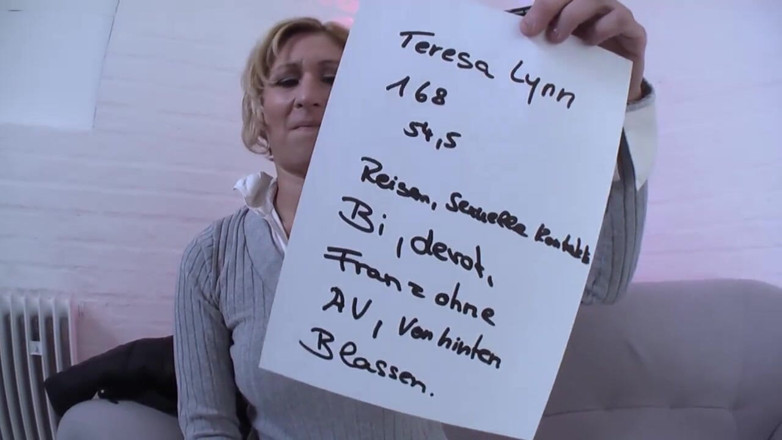 Teresa Lynn
168
54,5
Reisen, Sexuelle Kontakte
Bi, devot,
Franz ohne
AV, Von hinten
Blassen.